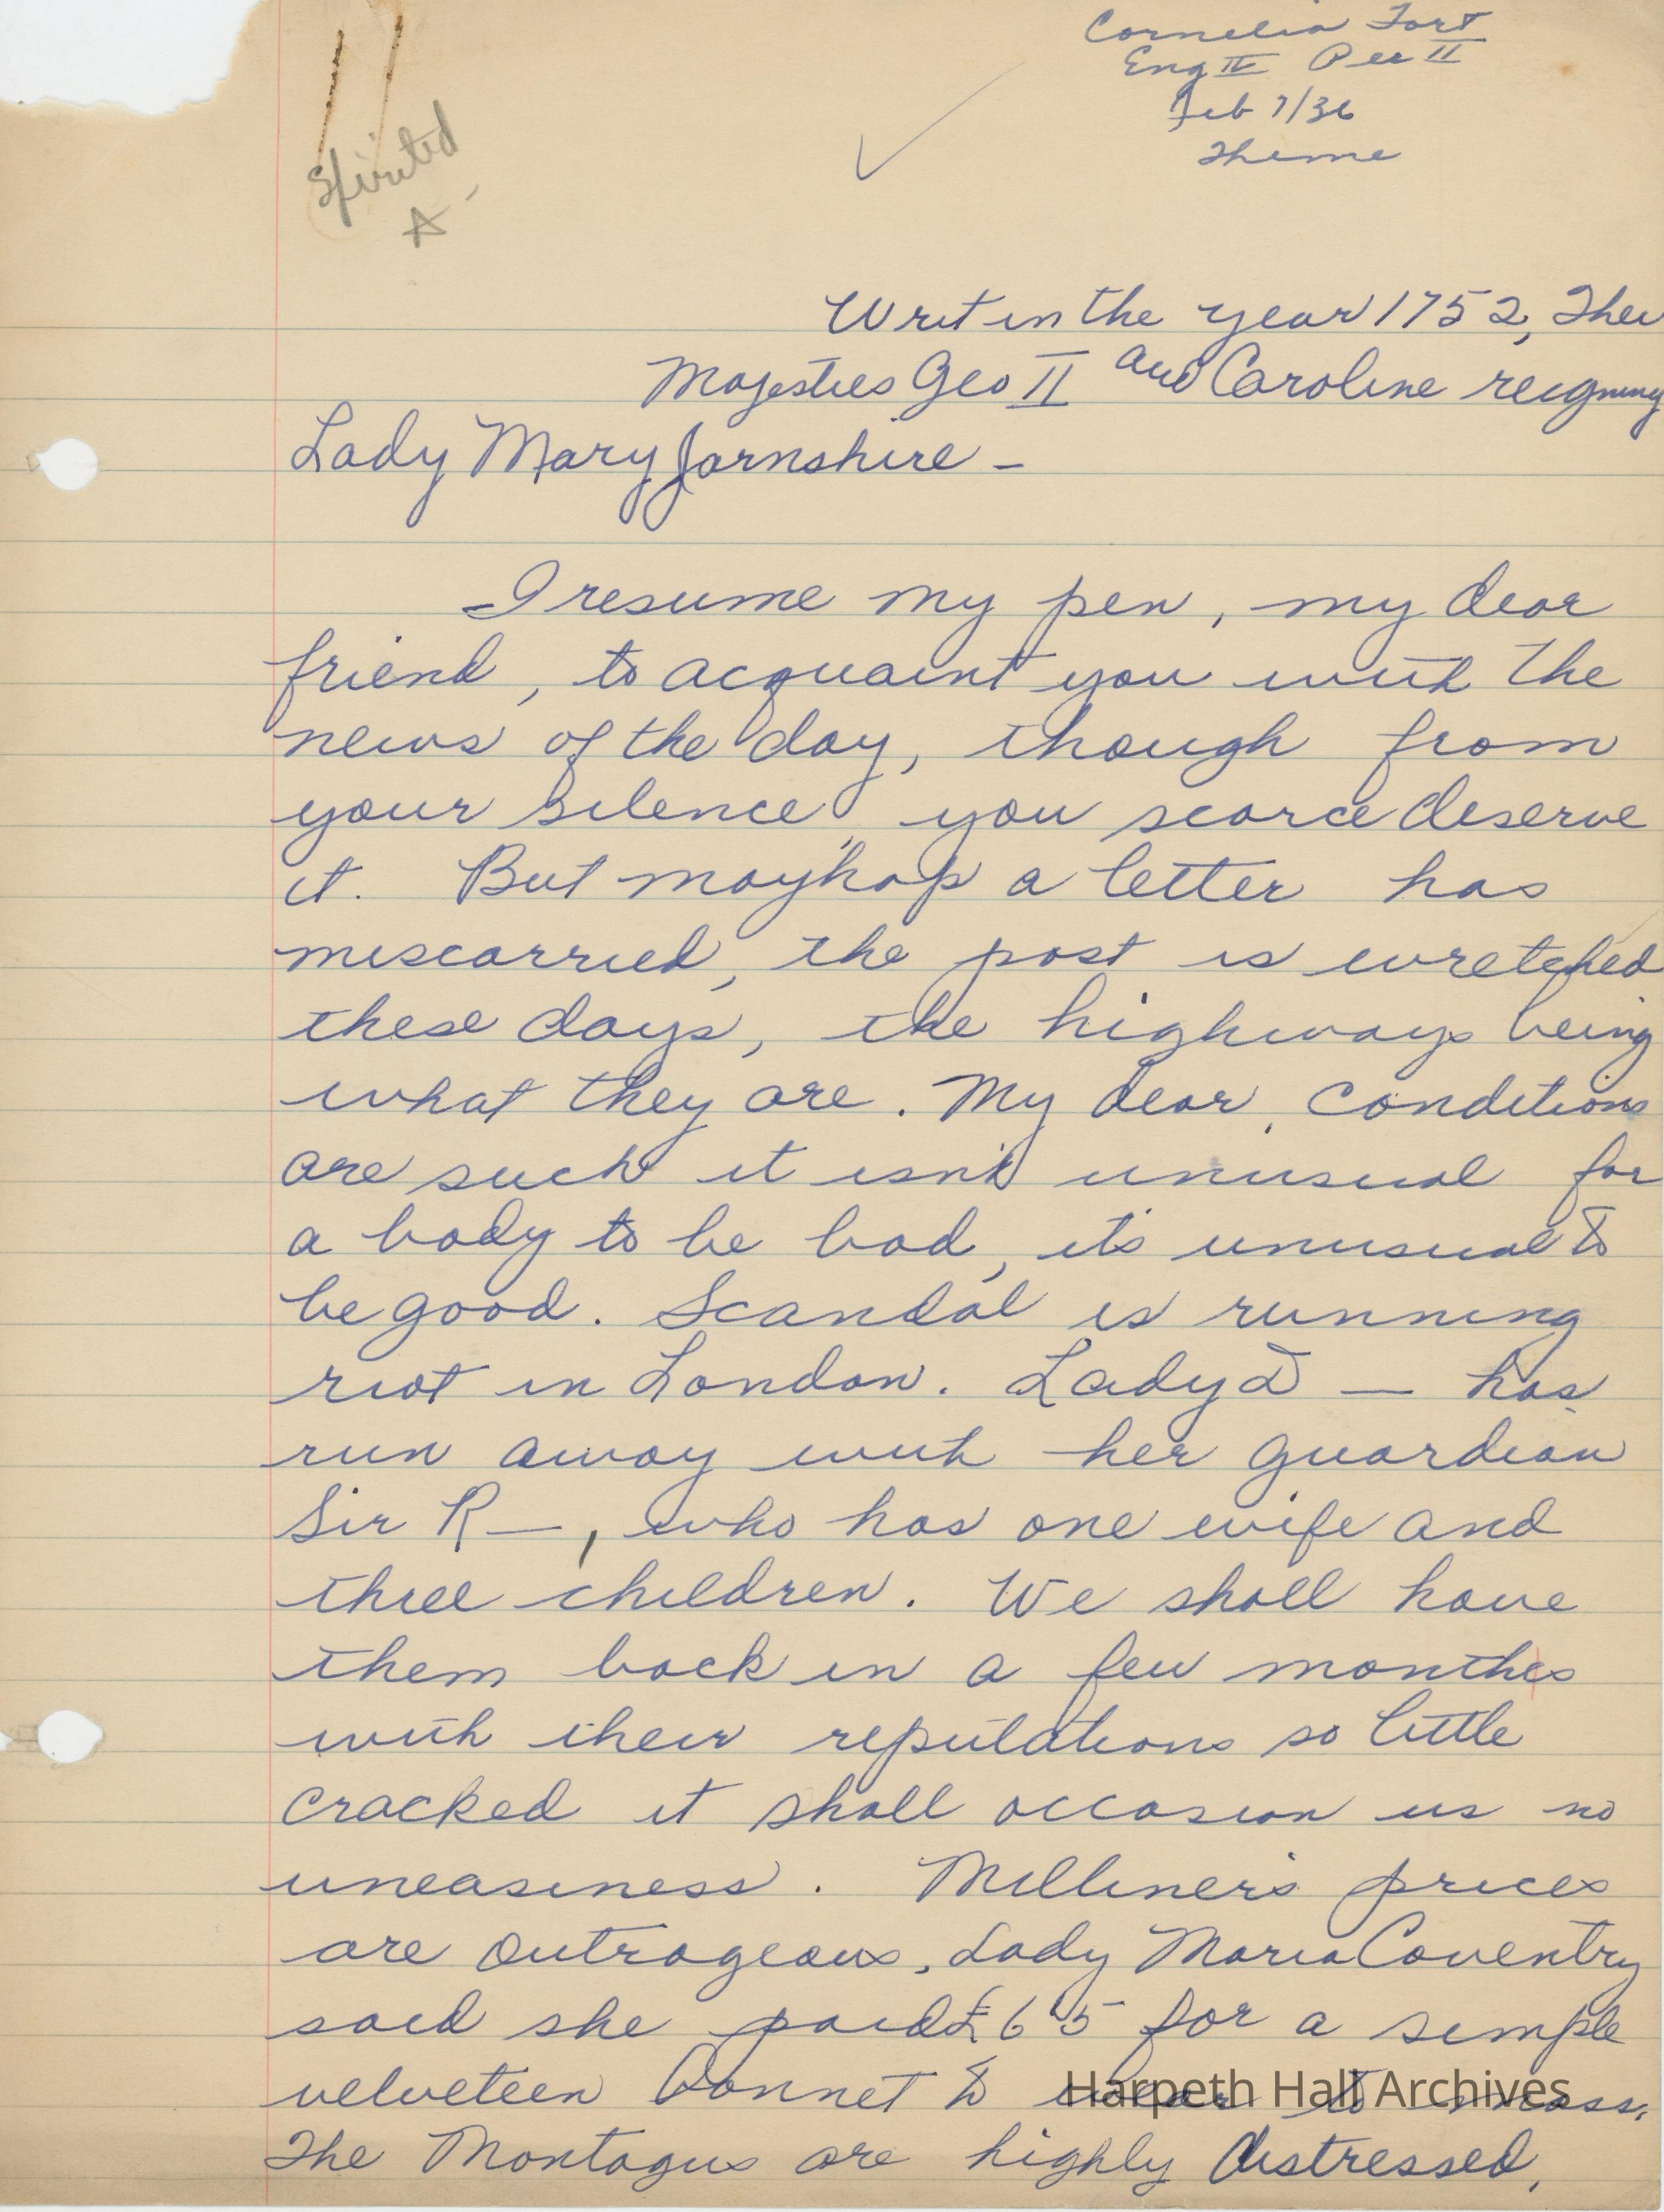 Cornelia Fort
Eng IV Per II
Feb 7/36
Theme
Spirited
A-
Writ in the year 1752, Their
Majesties Geo II and Caroline reigning
Lady Mary Jarnshire -
I resume my pen, my dear
friend, to acquaint you with the
news of the day, though from
your silence, you scarce deserve
it. But mayhap a letter has
miscarried, the post is wretched
these days, the highways being
what they are. My dear, conditions
are such it isn't unusual for
a body to be bad, it's unusual to
be good. Scandal is running
riot in London. Lady D — has
run away with her guardian
Sir R —, who has one wife and
three children. We shall have
them back in a few monthes
with their reputations so little
cracked it shall occasion us no
uneasiness. Milliner's prices
are outrageous, Lady Maria Coventry
said she paid £6'5 for a simple
velveteen bonnet to wear to mass.
The Montagus are highly distressed,
Harpeth Hall Archives